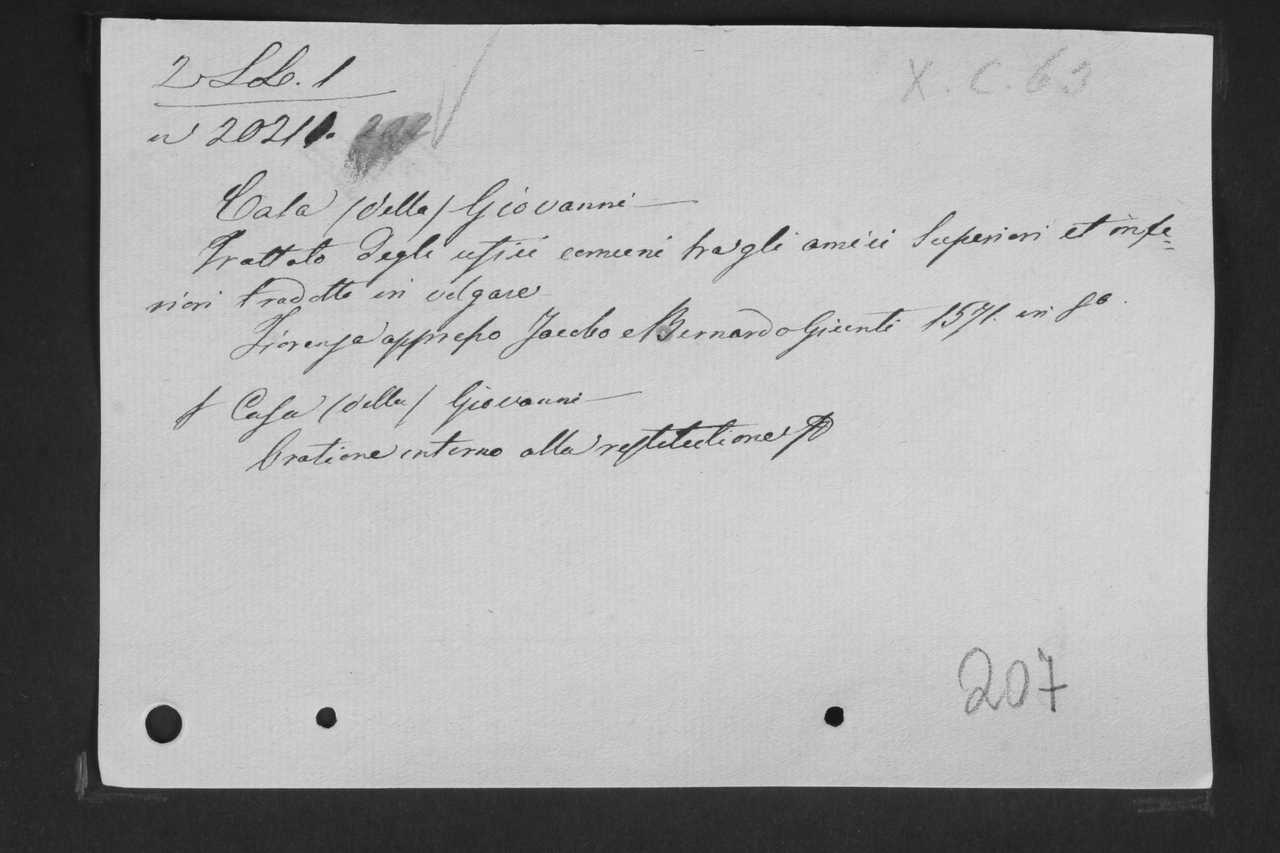 2 LL. 1
X. C. 63
n 2021
Casa (della) Giovanni
Trattato degli uficii comuni tra gli amici Superiori et infe=
riori tradotto in volgare
Fiorenza appresso Jacobo e Bernardo Giunti 1571. in 8o.
f Casa (della) Giovanni
Oratione intorno alla restitutione
207